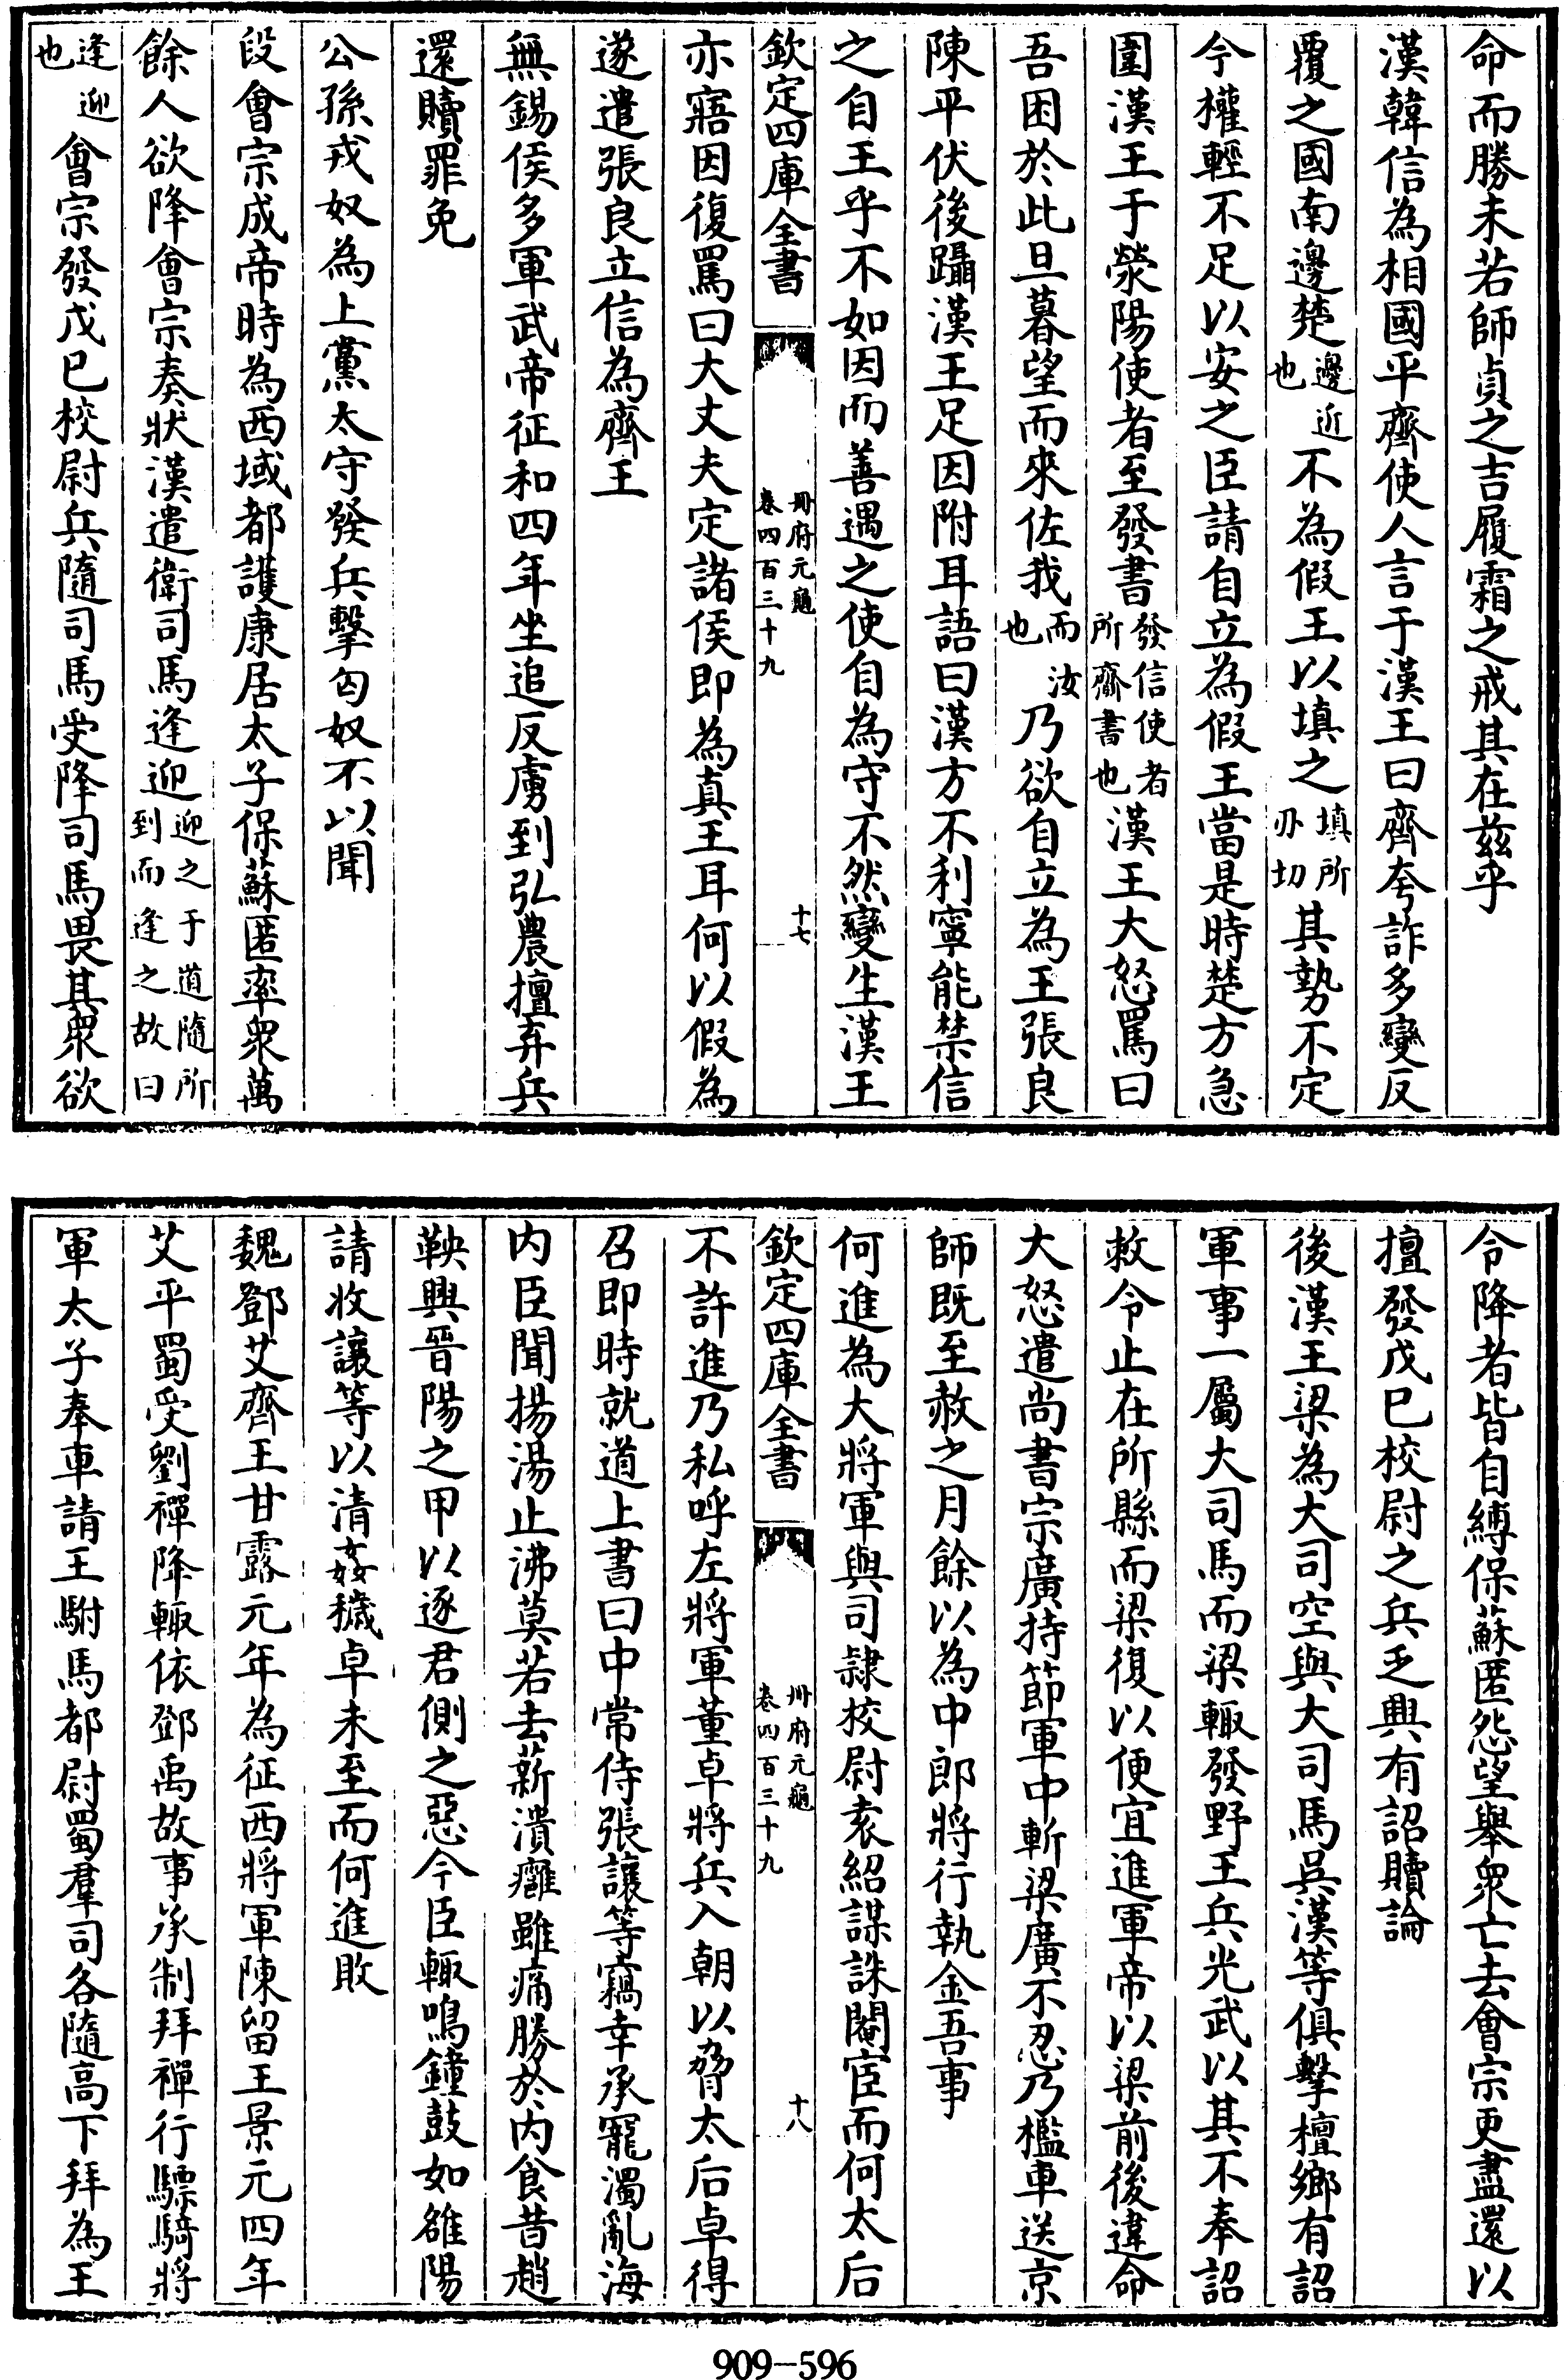 命而勝未若師貞之吉履霜之戒其在茲乎
漢韓信為相國平齊使人言于漢王曰齊夸詐多變反
覆之國南邊楚邊近也不為假王以填之填所刃切其勢不定
今權輕不足以安之臣請自立為假王當是時楚方急
圍漢王于滎陽使者至發書發信使者所齎書也漢王大怒罵曰
吾困於此旦暮望而來佐我而汝也乃欲自立為王張良
陳平伏後躡漢王足因附耳語曰漢方不利寧能禁信
之自王乎不如因而善遇之使自為守不然變生漢王
欽定四庫全書 冊府元龜卷四百三十九 十七
亦寤因復罵曰大丈夫定諸侯即為真王耳何以假為
遂遣張良立信為齊王
無錫侯多軍武帝征和四年坐追反虜到弘農擅弃兵
還贖罪免
公孫戎奴為上黨太守發兵擊匈奴不以聞
段會宗成帝時為西域都護康居太子保蘇匿率眾萬
餘人欲降會宗奏狀漢遣衛司馬逢迎迎之于道隨所到而逢之故曰
逢迎也會宗發戊巳校尉兵隨司馬受降司馬畏其眾欲
令降者皆自縛保蘇匿怨望舉眾亡去會宗更盡還以
擅發戊巳校尉之兵乏興有詔贖論
後漢王梁為大司空與大司馬吳漢等俱擊檀鄉有詔
軍事一屬大司馬而梁輙發野王兵光武以其不奉詔
敕令止在所縣而梁復以便宜進軍帝以梁前後違命
大怒遣尚書宗廣持節軍中斬梁廣不忍乃檻車送京
師既至赦之月餘以為中郎將行執金吾事
何進為大將軍與司隷校尉袁紹謀誅閹宦而何太后
欽定四庫全書 冊府元龜卷四百三十九 十八
不許進乃私呼左將軍董卓將兵入朝以脅太后卓得
召即時就道上書曰中常侍張讓等竊幸承寵濁亂海
内臣聞揚湯止沸莫若去薪潰癰雖痛勝於内食昔趙
鞅興晉陽之甲以逐君側之惡今臣輙鳴鐘鼓如雒陽
請收讓等以清姦穢卓未至而何進敗
魏鄧艾齊王甘露元年為征西將軍陳留王景元四年
艾平蜀受劉禪降輙依鄧禹故事承制拜禪行驃騎將
軍太子奉車請王駙馬都尉蜀羣司各隨高下拜為王
909-596